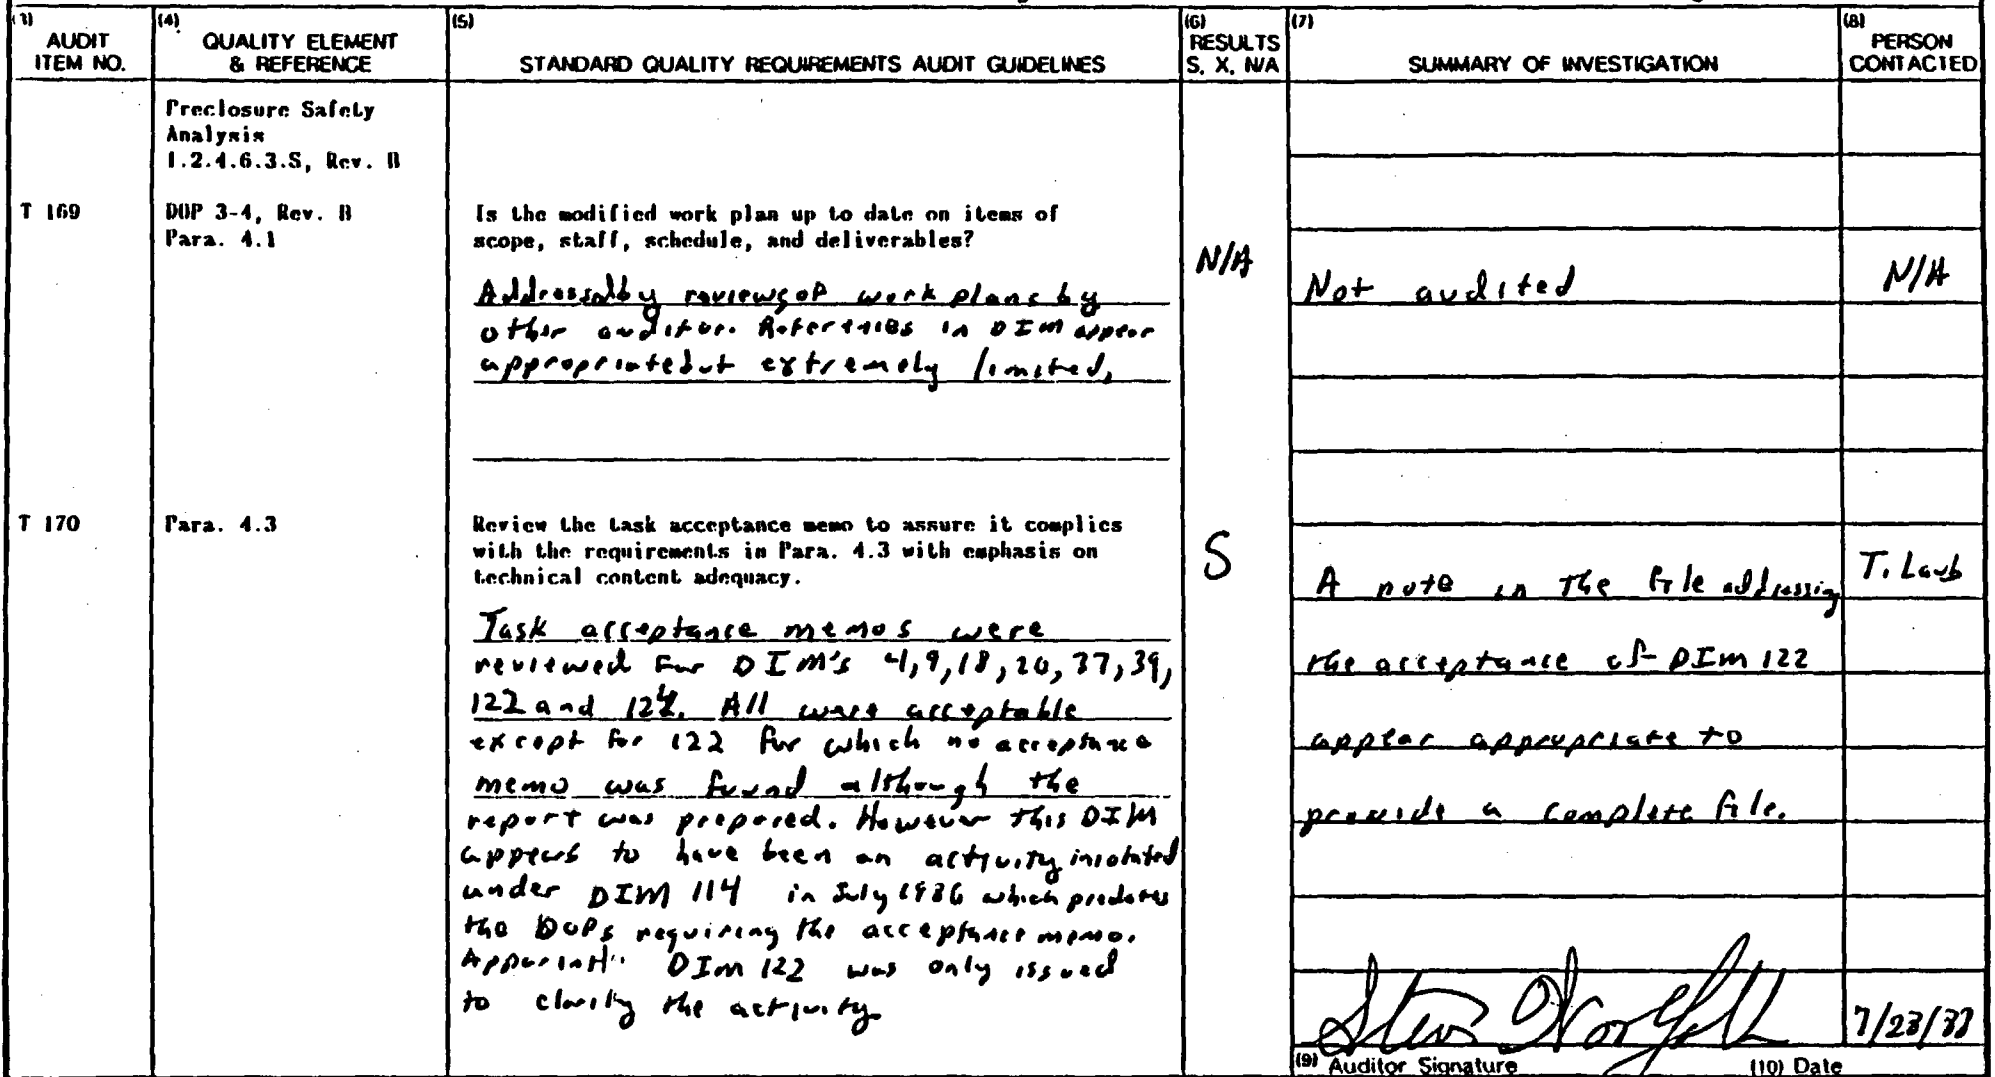 (3) AUDIT ITEM NO.
(4) QUALITY ELEMENT & REFERENCE
(5) STANDARD QUALITY REQUIREMENTS AUDIT GUIDELINES
(6) RESULTS S, X, N/A
(7) SUMMARY OF INVESTIGATION
(8) PERSON CONTACTED
Preclosure Safety
Analysis
1.2.4.6.3.S, Rev. B
T 169
DOP 3-4, Rev. B
Para. 4.1
Is the modified work plan up to date on items of
scope, staff, schedule, and deliverables?
Addressed by reviews of work plans by
other auditor. References in DIM appear
appropriate but extremely limited.
N/A
Not audited
N/A
T 170
Para. 4.3
Review the task acceptance memo to assure it complies
with the requirements in Para. 4.3 with emphasis on
technical content adequacy.
Task acceptance memos were
reviewed for DIM's 4, 9, 18, 20, 37, 39,
122 and 124. All were acceptable
except for 122 for which no acceptance
memo was found although the
report was prepared. However this DIM
appears to have been an activity
under DIM 114 in July 1986 which predates
the DOPs requiring the acceptance memo.
DIM 122 was only issued
to clarify the activity
S
A note in the file addressing
the acceptance of DIM 122
appear appropriate to
provide a complete file.
T. Laub
7/23/87
(9) Auditor Signature
(10) Date